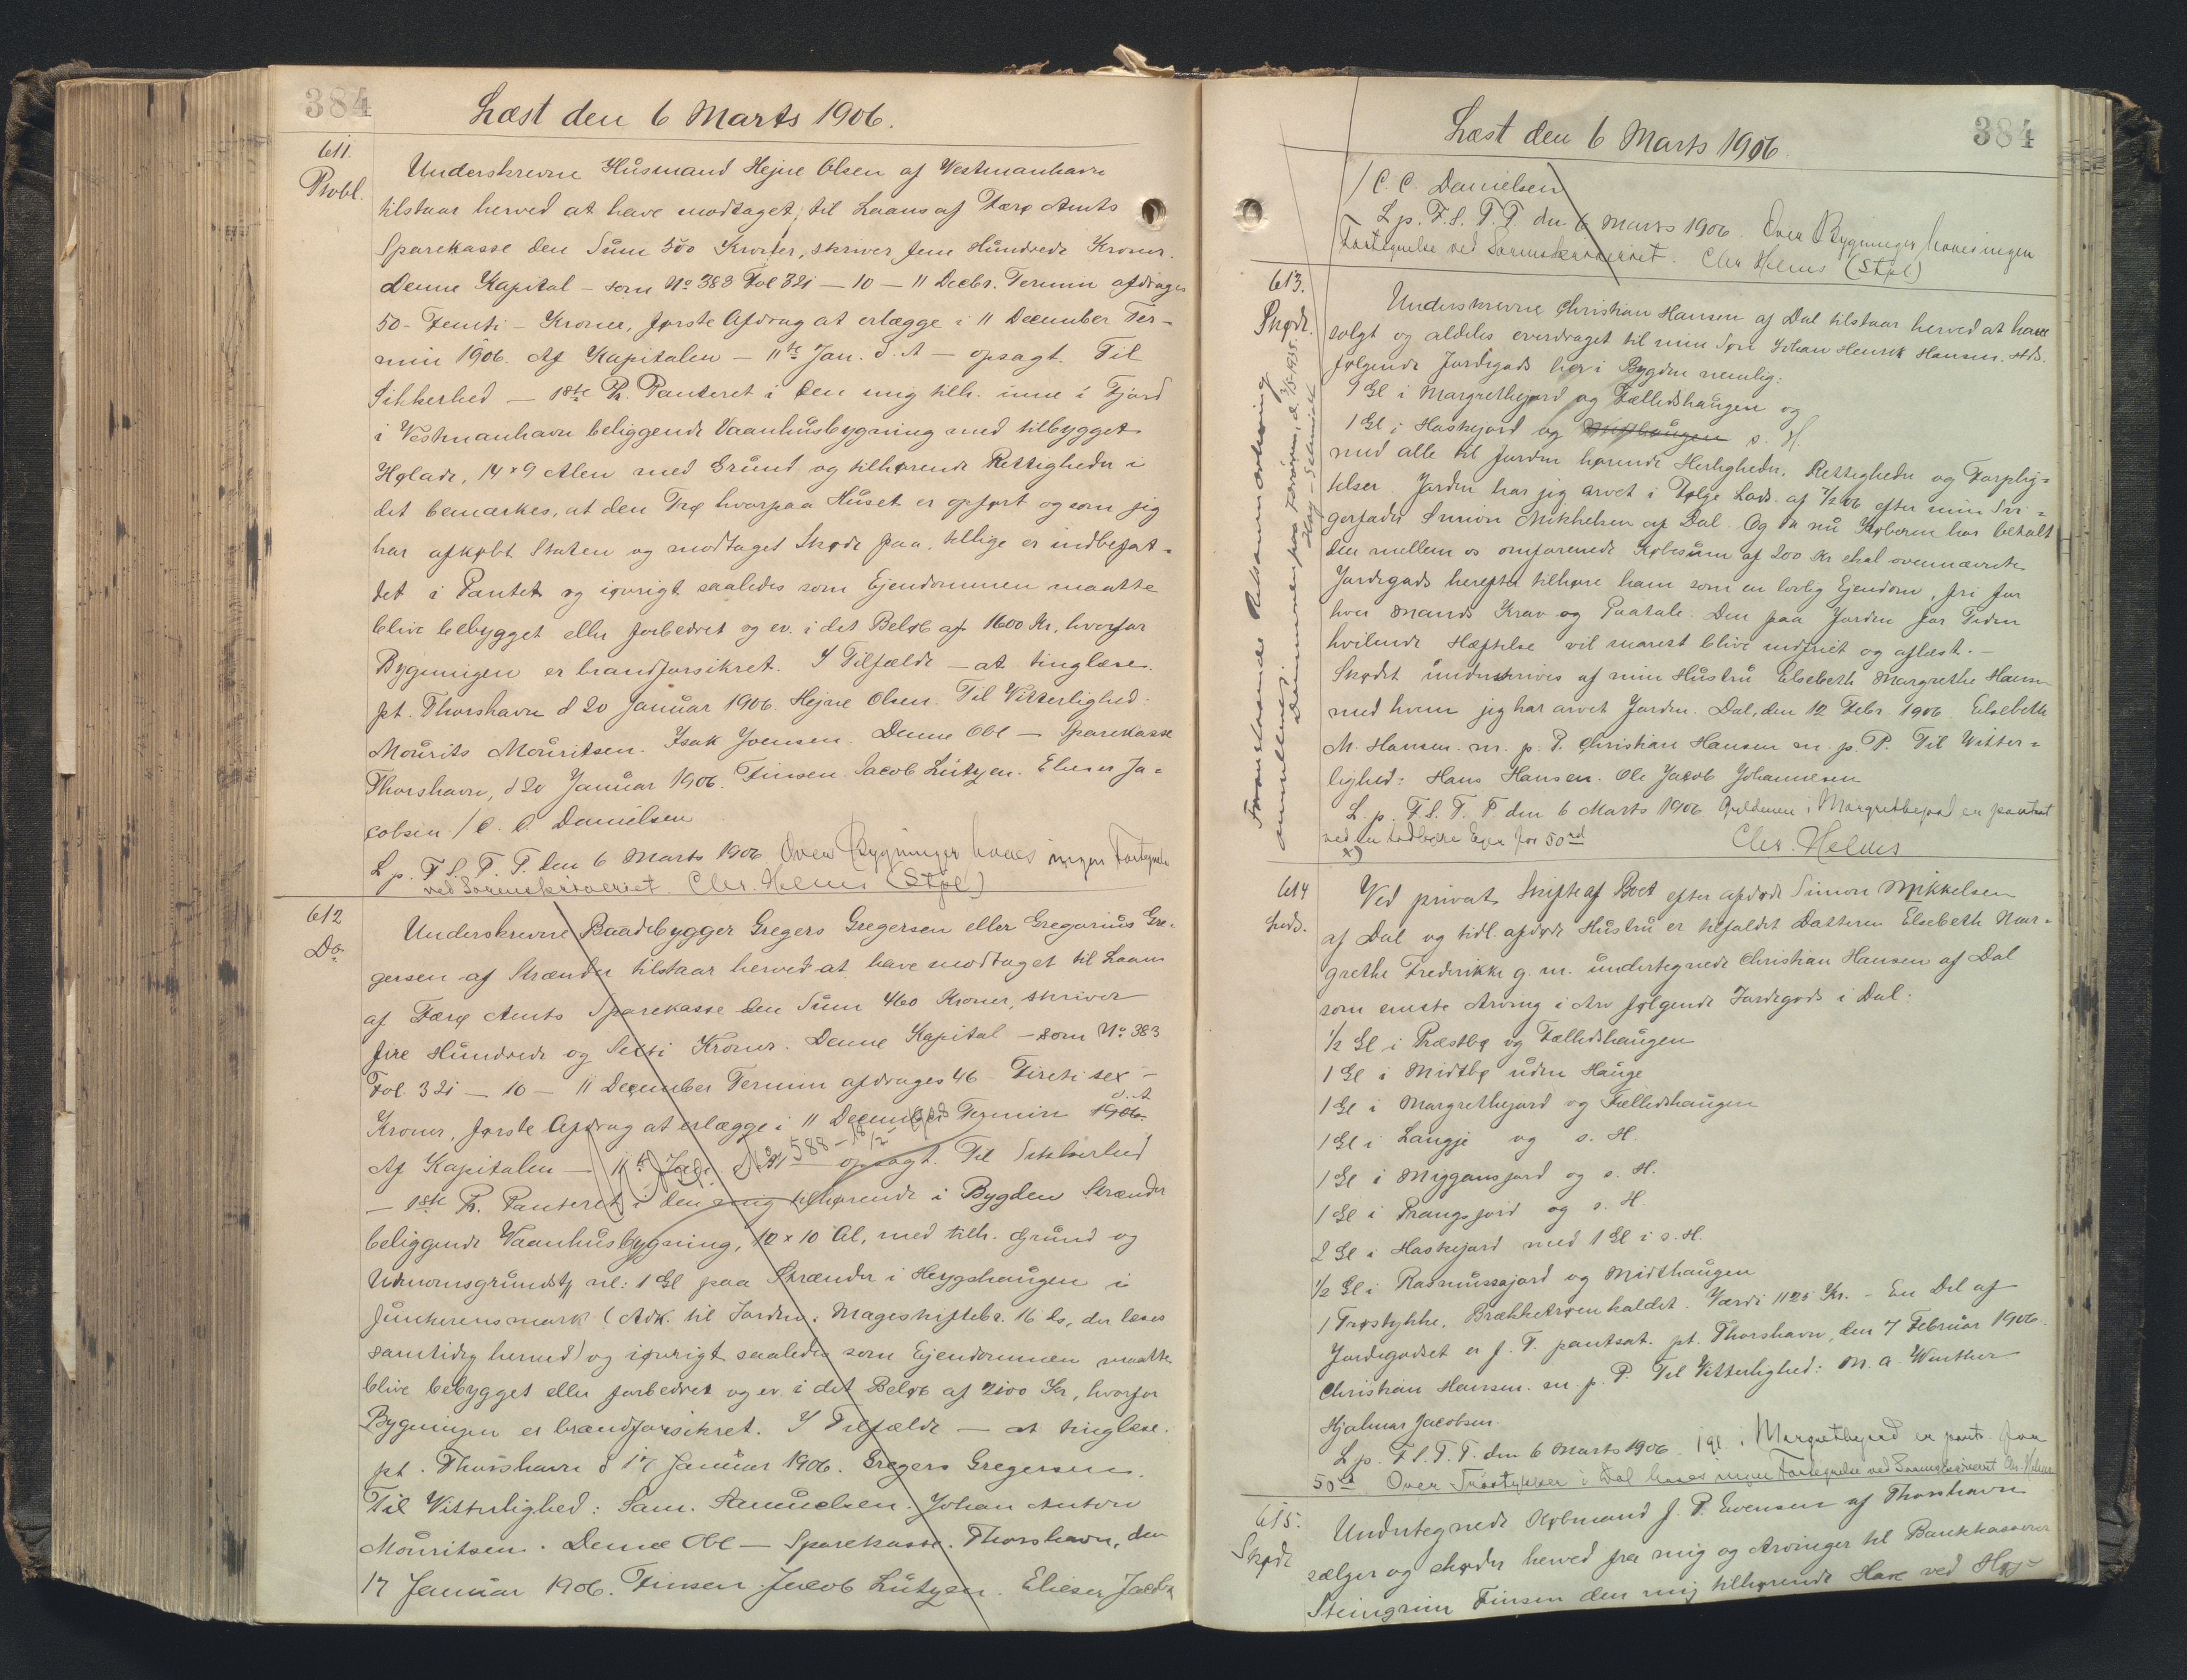 384
Læst den 6 Marts 1906.
611.
Pobl.
Underskrevne Husmand Hejne Olsen af Vestmanhavn
tilstaar herved at have modtaget, til Laans af Færø Amts
Sparekasse den Sum 500 Kroner, skriver fem Hundrede Kroner.
Denne Kapital – som No 383 Fol 321 – 10 – 11 Decbr. Termin afdrages
50 - Femti - Kroner, første Afdrag at erlægge i 11 December Ter-
min 1906. Af Kapitalen – 11te Jan. d. A – opsagt. Til
Sikkerhed – 1ste Pr. Panteret i den mig tilh. inne i Fjord
i Vestmanhavn beliggende Vaanhusbygning med tilbygget
Hølade, 14 × 9 Alen med Grund og tilhørende Rettigheder i
det bemærkes, at den Trø hvorpaa Huset er opført og som jeg
har afkøbt Staten og modtaget Skøde paa, tillige er indbefat-
tet i Pantet og iøvrigt saaledes som Ejendommen maatte
blive bebygget eller forbedret og ev. i det Beløb af 1600 Kr, hvorfor
Bygningen er brandforsikret. I Tilfælde – at tinglæse.
pt. Thorshavn d 20 Januar 1906. Hejne Olsen. Til Vitterlighed.
Mourits Mouritsen. Isak Joensen. Denne Obl – Sparekasse
Thorshavn, d 20 Januar 1906. Finsen. Jacob Lützen. Elieser Ja-
cobsen / C. C. Danielsen
L. p. F. S. T. P. den 6 Marts 1906 Over Bygninger haves ingen Fortegnelse
ved Sorenskriveriet. Chr. Helms (Stpl)
612
Do
Underskrevne Baadebygger Gregers Gregersen eller Gregorius Gre-
gersen af Strænder tilstaar herved at have modtaget til Laans
af Færø Amts Sparekasse den Sum 460 Kroner, skriver
fire Hundrede og Sexti Kroner. Denne Kapital – som No 383
Fol. 321 – 10 – 11 December Termin afdrages 46 - Fireti sex -
Kroner, første Afdrag at erlægge i 11 December Termin 1906. d. A
Af Kapitalen – 11te Jan. – opsagt. Til Sikkerhed
– 1ste Pr. Panteret i den mig tilhørende i Bygden Strænder
beliggende Vaanhusbygning, 12 × 10 Al, med tilh. Grund og
Udenomsgrundst. nl: 1 Gl paa Strænder i Heygshaugen i
Junkerensmark (Adk. til Jorden: Mageskiftebr. 16 ds, der læses
samtidig hermed) og iøvrigt saaledes som Ejendommen maatte
blive bebygget eller forbedret og ev. i det Beløb af 2100 Kr, hvorfor
Bygningen er brandforsikret. I Tilfælde – at tinglæse.
pt. Thorshavn d 17 Januar 1906. Gregers Gregersen.
Til Vitterlighed: Sam. Samuelsen. Johan Anton
Mouritsen. Denne Obl – Sparekasse. Thorshavn, den
17 Januar 1906. Finsen. Jacob Lützen. Elieser Jacobs
384
Læst den 6 Marts 1906.
/ C. C. Danielsen
L. p. F. S. T. P. den 6 Marts 1906. Over Bygninger haves ingen
Fortegnelse ved Sorenskriveriet. Chr Helms (Stpl)
613.
Skøde.
Underskrevne Christian Hansen af Dal tilstaar herved at have
solgt og aldeles overdraget til min Søn Johan Henrik Hansen. Hds.
følgende Jordegods her i Bygden nemlig:
1 Gl i Margrethejord og Fællidshaugen og
1 Gl i Haskejord og s. H.
med alle til Jorden hørende Herligheder, Rettigheder og Forplig-
telser. Jorden har jeg arvet i Følge Lods. af 7/2 06 efter min Svi-
gerfader Simon Mikkelsen af Dal. Og da nu Køberen har betalt
den mellem os omforenede Købesum af 200 Kr skal ovennævnte
Jordegods herefter tilhøre ham som en lovlig Ejendom, fri for
hver Mands Krav og Paatale. Den paa Jorden for Tiden
hvilende Hæftelse vil snarest blive indfriet og aflæst. –
Skødet underskrives af min Hustru Elsebeth Margrethe Hansen
med hvem jeg har arvet Jorden. Dal, den 12 Febr. 1906. Elsebeth
M. Hansen. m. p. P. Christian Hansen m. p. P. Til Vitter-
lighed: Hans Hansen. Ole Jacob Johannesen
L. p. F. S. T. P den 6 Marts 1906 Gyldenen i Margrethejord er pantsat
ved en tidligere Ejer for 50 rd
x)
Chr. Helms
Foranstaaende Retsanmærkning
annulleret
Dalsmynnen paa Færøerne, d. 3/5-1915.
614
Lods.
Ved privat Skifte af Boet efter afdøde Simon Mikkelsen
af Dal og tidl. afdøde Hustru er tilfaldet Datteren Elsebeth Mar-
grethe Frederikke g. m. undertegnede Christian Hansen af Dal
som eneste Arving i Arv følgende Jordegods i Dal:
1/2 Gl i Præstbø og Fællidshaugen
1 Gl i Midtbø uden Hauge
1 Gl i Margrethejord og Fællidshaugen
1 Gl i Langje og s. H.
1 Gl i Miggansjord og s. H.
1 Gl i Prangsjord og s. H.
2 Gl i Haskejord med 1 Gl i s. H.
1/2 Gl i Rasmussajord og Midthaugen
1 Trøstykke, Brækketrøen kaldet. Værdi 1125 Kr. – En Del af
Jordegodset er f. T. pantsat. pt. Thorshavn, den 7 Februar 1906.
Christian Hansen. m. p. P. Til Vitterlighed: M. A. Winther
Hjalmar Jacobsen.
L. p. F. S. T. P. den 6 Marts 1906. 1 Gl. i Margrethejord er pants. for
50 rd. Over Trøstykker i Dal haves ingen Fortegnelse ved Sorenskriveriet Chr. Helms
615.
Skøde
Undertegnede Købmand J. P. Evensen af Thorshavn
sælger og skøder herved fra mig og Arvinger til Bankkasserer
Steingrim Finsen den mig tilhørende Have ved Høj-